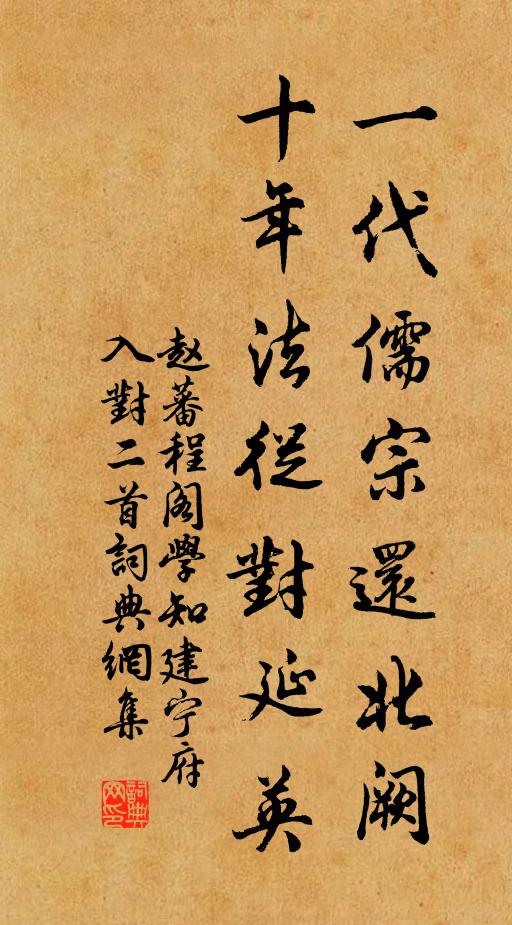 一代儒宗還北阙
十年法從對延英
赵蕃程阁學知建宁府
入對二首詞典網集
詞典網印